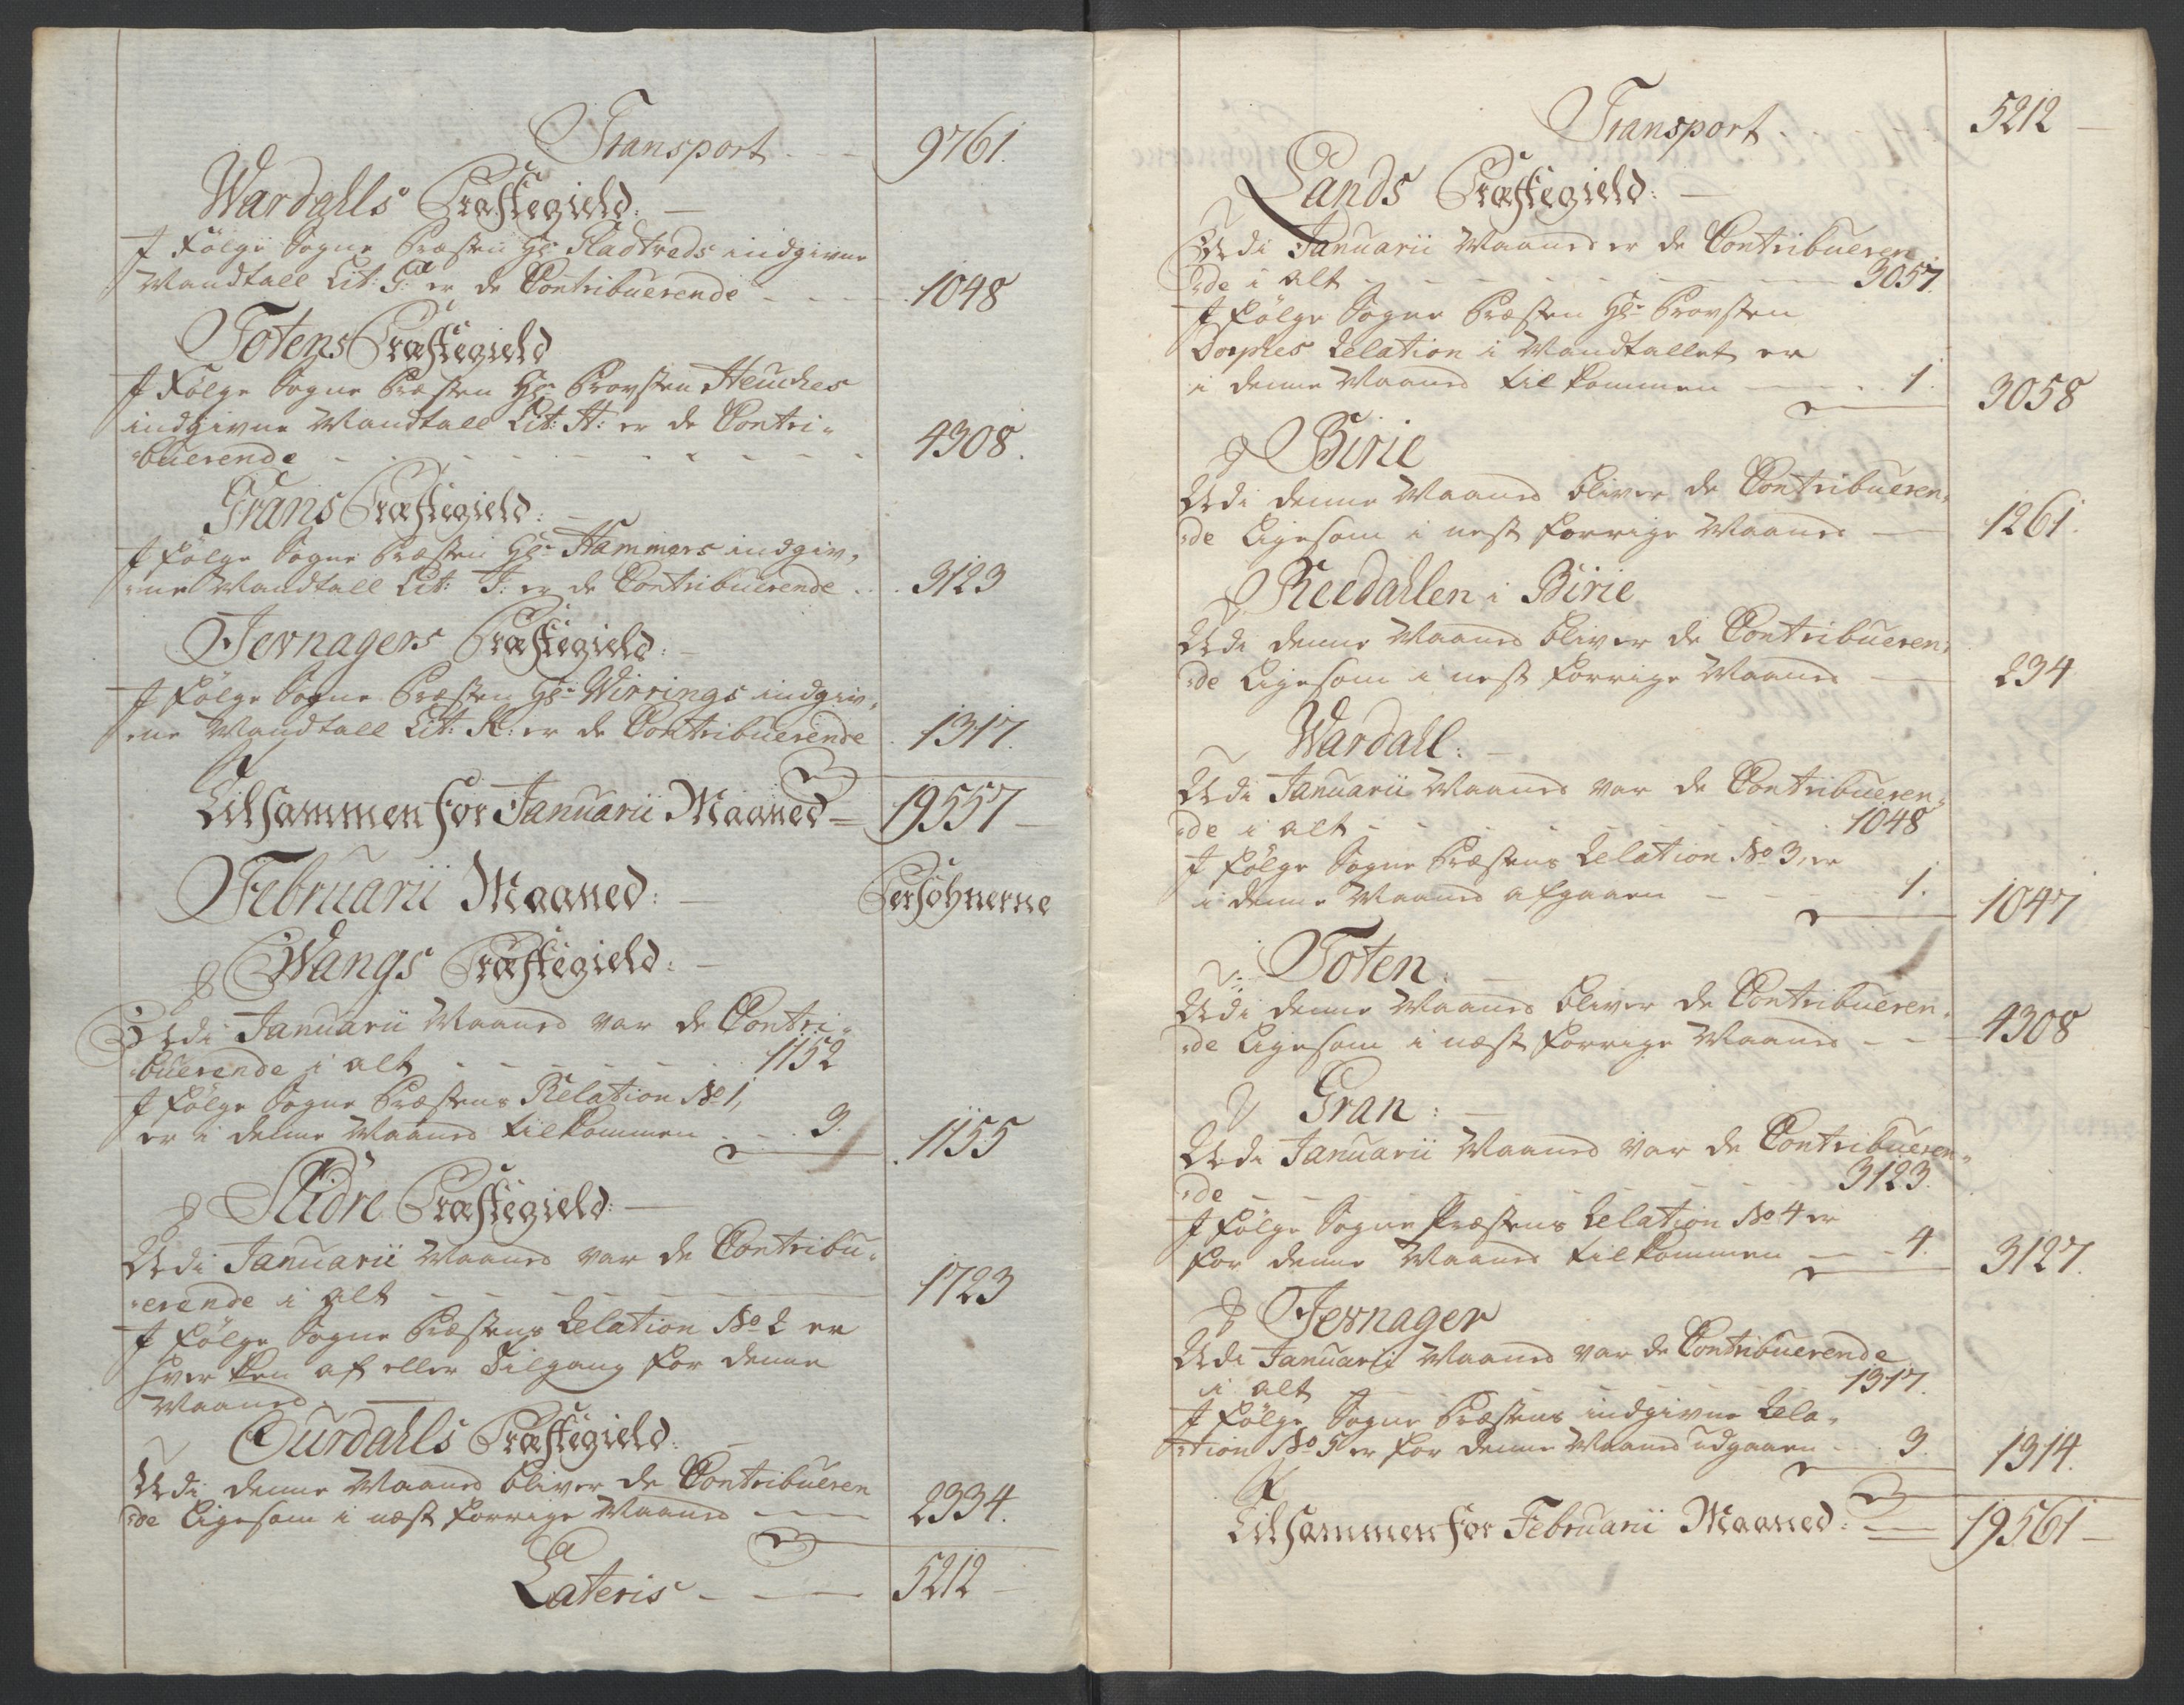 Transport - - 9761.
Wardahls Præstegield: -
I Følge Sogne Præsten Hr: Fladtreds indgivne
Mandtall Lit: G: er de Contribuerende - - - - 1048
Totens Præstegield
I Følge Sogne Præsten Hr: Provsten Heuches
indgivne Mandtall Lit: H: er de Contri-
buerende - - - - - - - - - 4308.
Grans Præstegield: -
I følge Sogne Præsten Hr: Hammers indgiv-
ne Mandtall Lit: I: er de Contribuerende . . 3123
Jevnagers Præstegield: -
I følge Sogne Præsten Hr: Wirrings indgiv-
ne Mandtall Lit: K: er de Contribuerende . 1317.
Tilsammen for Januarii Maaned = 19557 -
Februarii Maaned: - Persohnerne
Wangs Præstegield: -
Udi Januarii Maaned var de Contri-
buerende i alt - - - - - 1152
I følge Sogne Præstens Relation No 1,
er i denne Maaned tilkommen - - 3. 1155
Slidre Præstegield: -
Udi Januarii Maaned var de Contribu-
erende i alt - - - - - - 1723
I følge Sogne Præstens Relation No 2 er
hverken af eller Tilgang for denne
Maaned. -
Ourdahls Præstegield: -
Udi denne Maaned bliver de Contribueren
de ligesom i næst forrige Maaned - - 2334.
Lateris - - - 5212 -
Transport - - - 5212 -
Lands Præstegield: -
Udi Januarii Maaned er de Contribueren-
de i alt - - - - - - - 3057.
I følge Sogne Præsten Hr: Provsten
Dorphes Relation i Mandtallet er
i denne Maaned tilkommen - - . 1. 3058
Birie
Udi denne Maaned bliver de Contribueren-
de ligesom i nest forrige Maaned - 1261.
Reedahlen i Birie
Udi denne Maaned bliver de Contribueren-
de ligesom i nest forrige Maaned - 234
Wardahl: -
Udi Januarii Maaned var de Contribueren-
de i alt - - - - - - 1048
I følge Sogne Præstens Relation No 3, er
i denne Maaned afgaaen - - - 1. 1047
Toten: -
Udi denne Maaned bliver de Contribueren-
de ligesom i næst forrige Maaned - - - 4308
Gran: -
Udi Januarii Maaned var de Contribueren-
de - - - - - - - 3123.
I følge Sogne Præstens Relation No 4 er
for denne Maaned tilkommen - - 4. 3127.
Jevnager
Udi Januarii Maaned var de Contribuerende
i alt - - - - - - 1317.
I følge Sogne Præstens indgivne Rela-
tion No 5 er for denne Maaned udgaaen - . 3. 1314.
Tilsammen for Februarii Maaned: = 19561 -